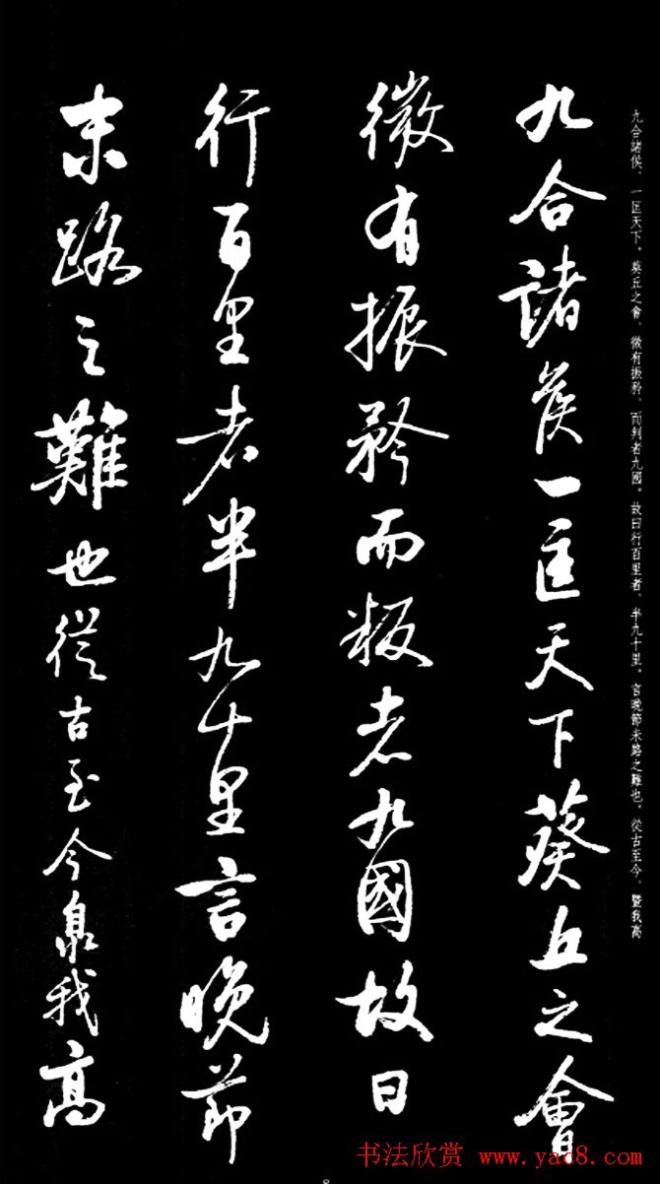 九合諸侯、一匡天下。葵丘之會、微有振矜、而判者九國。故曰行百里者、半九十里。言晚節末路之難也。從古至今、暨我高
九合諸侯一匡天下葵丘之會
微有振矜而叛者九國故曰
行百里者半九十里言晚節
末路之難也從古至今臮我高
书法欣赏 www.yac8.com